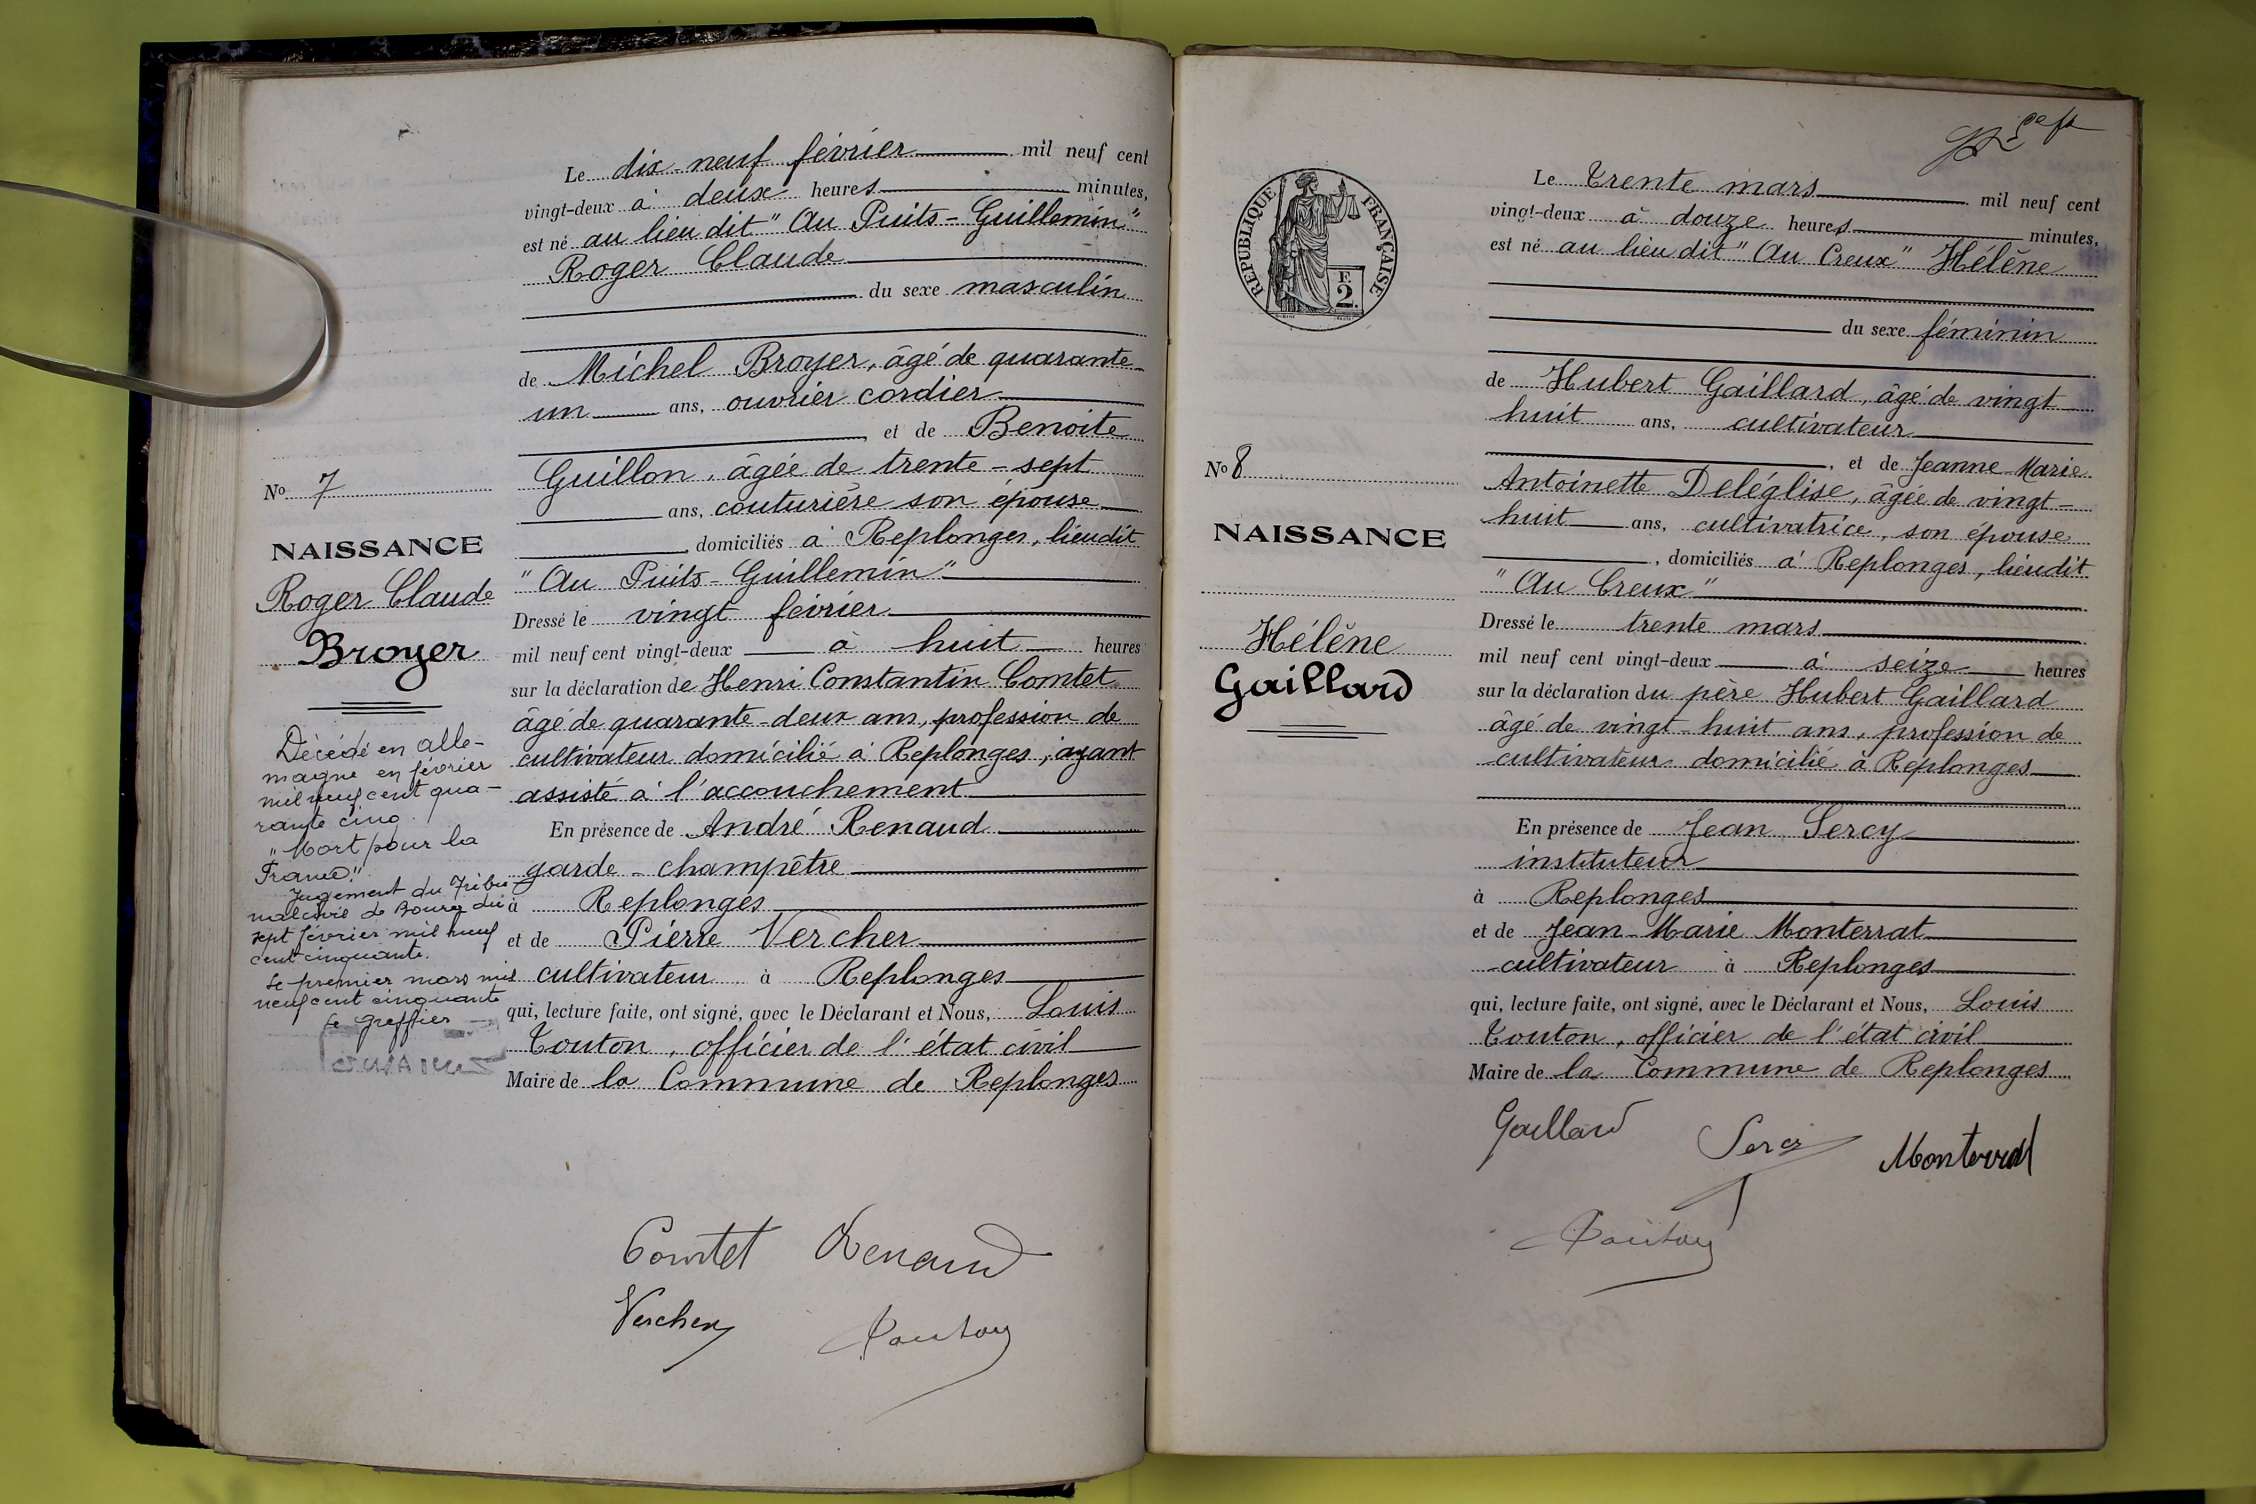 Le dix-neuf février mil neuf cent
vingt-deux à deux heures minutes,
est né au lieu dit "Au Puits-Guillemin"
Roger Claude
du sexe masculin
de Michel Broyer, âgé de quarante-
un ans, ouvrier cordier
et de Benoite
Guillon, âgée de trente-sept
ans, couturière son épouse
domiciliés à Replonges, lieudit
"Au Puits-Guillemin"
Dressé le vingt février
mil neuf cent vingt-deux à huit heures
sur la déclaration de Henri Constantin Comtet
âgé de quarante-deux ans, profession de
cultivateur domicilié à Replonges, ayant
assisté à l'accouchement
En présence de André Renaud
garde-champêtre
à Replonges
et de Pierre Vercher
cultivateur à Replonges
qui, lecture faite, ont signé, avec le Déclarant et Nous, Louis
Touton, officier de l'état civil
Maire de la Commune de Replonges
Comtet Renaud
Vercher Touton
No 7
NAISSANCE
Roger Claude
Broyer
Décédé en alle-
magne en février
mil neuf cent qua-
rante cinq.
"Mort pour la
France".
Jugement du Tribu
nal civil de Bourg du
sept février mil neuf
cent cinquante.
Le premier mars mil
neuf cent cinquante
Le Greffier
RÉPUBLIQUE FRANÇAISE
F.
2.
Le Trente mars mil neuf cent
vingt-deux à douze heures minutes,
est né au lieu dit "Au Creux" Hélène
du sexe féminin
de Hubert Gaillard, âgé de vingt
huit ans, cultivateur
, et de Jeanne-Marie
Antoinette Deléglise, âgée de vingt-
huit ans, cultivatrice, son épouse
, domiciliés à Replonges, lieudit
"Au Creux"
Dressé le trente mars
mil neuf cent vingt-deux à seize heures
sur la déclaration du père Hubert Gaillard
âgé de vingt-huit ans, profession de
cultivateur domicilié à Replonges
En présence de Jean Sercy
instituteur
à Replonges
et de Jean-Marie Monterrat
cultivateur à Replonges
qui, lecture faite, ont signé, avec le Déclarant et Nous, Louis
Touton, officier de l'état civil
Maire de la Commune de Replonges
Gaillard Sercy Monterrat
Touton
No 8
NAISSANCE
Hélène
Gaillard